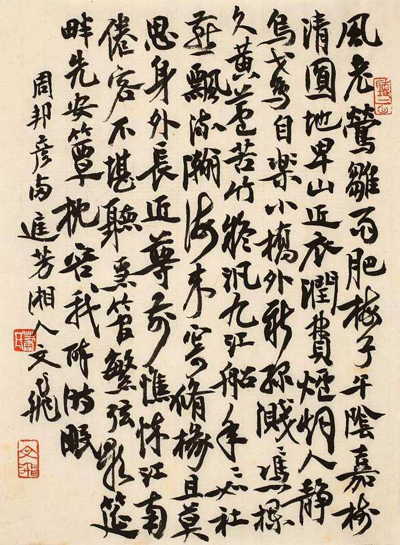 風老鶯雛雨肥梅子午陰嘉樹
清圓地卑山近衣潤費爐烟人靜
烏鳶自樂小橋外新綠濺〻憑欄
久黃蘆苦竹擬汎九江船年〻如社
燕飄流瀚海來寄脩椽且莫
思身外長近尊前憔悴江南
倦客不堪聽急管繁弦歌筵
畔先安簟枕容我醉時眠
周邦彥滿庭芳湘人文